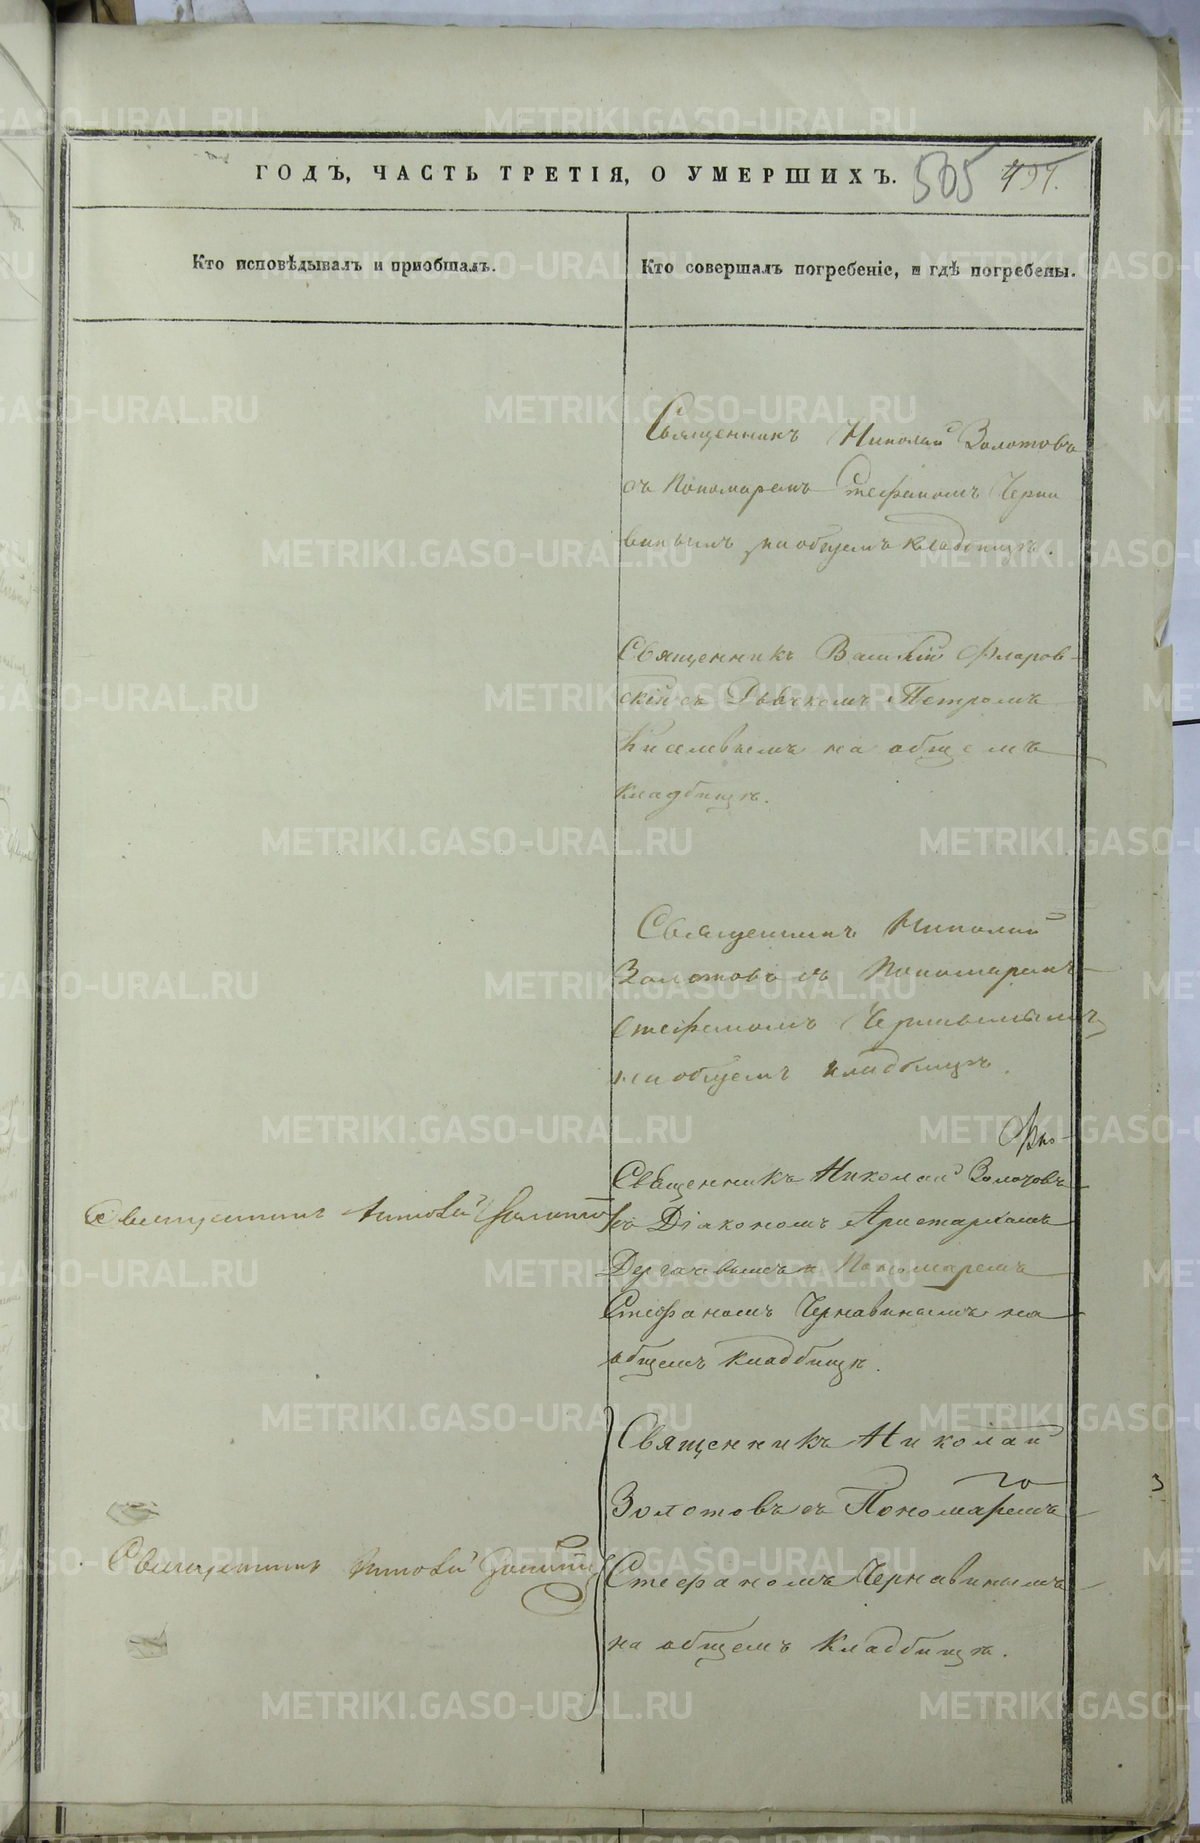 ГОДЪ, ЧАСТЬ ТРЕТІЯ, О УМЕРШИХЪ.
505
Кто исповѣдывалъ и пріобщалъ.
Кто совершалъ погребеніе, и гдѣ погребены.
Священникъ Николай Золотовъ
съ Пономаремъ Стефаномъ Черна
винымъ на общемъ кладбищѣ.
Священникъ Василій Флоров-
скій съ Дьячкомъ Петромъ
на общемъ
кладбищѣ.
Священникъ Николай
Золотовъ съ Пономаремъ
Стефаномъ Чернавинымъ
на общемъ кладбищѣ.
Священникъ Николай Золотовъ
Священникъ Николай
съ Діакономъ Аристархомъ
Дергачевымъ и Пономаремъ
Стефаномъ Чернавинымъ на
общемъ кладбищѣ.
Священникъ Николай
Золотовъ съ Пономаремъ
Священникъ Николай
Стефаномъ Чернавинымъ
на общемъ кладбищѣ.
METRIKI.GASO-URAL.RU